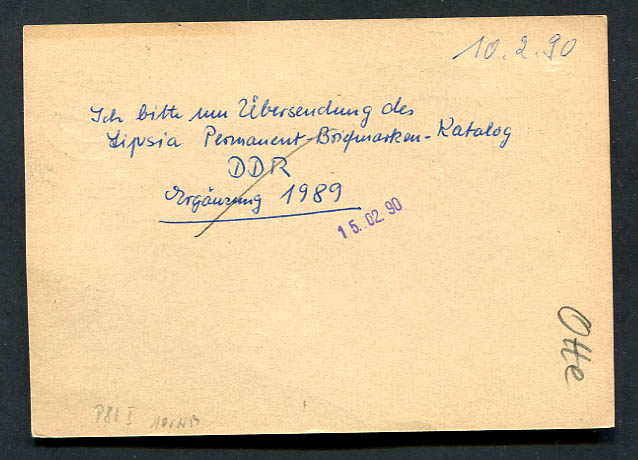 10.2.90
Ich bitte um Übersendung des
Lipsia Permanent-Briefmarken-Katalog
DDR
Ergänzung 1989
15.02.90
Otte
P81 I